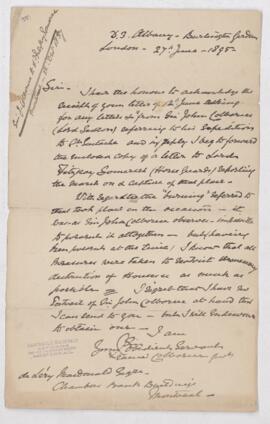 D.3 Albany - Burlington Gardens
London - 27th June - 1895 -
Sir - I have the honour to acknowledge the
receipt of your letter of June asking
for any letters from Sir John Colborne
(Lord Seaton) referring to his Expedition
to St Eustache and in reply I beg to forward
the enclosed copy of a letter to Lord
Fitzroy Somerset (Horse Guards) reporting
the march on & capture of that place -
With regard to the "burning" referred to
that took place on the occasion - it
Sir John Colborne observes - impossible
to prevent it altogether - but having
been present at the time, I know that all
measures were taken to restrict unnecessary
destruction of Houses as much as
possible - I regret that I have no
Portrait of Sir John Colborne at hand that
I can send to you - but I will endeavour
to obtain one - I am
Sir
Your Obedient Servant
Colborne
de Léry Macdonald Esqre
Chambers Bank Buildings
Montreal -